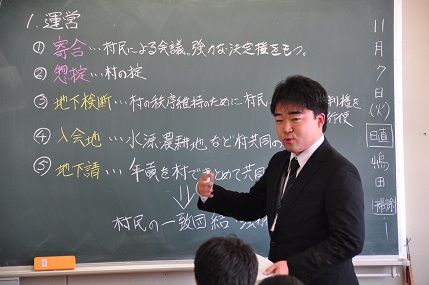 1. 運営
① 寄合…村民による会議。強力な決定権をもつ。
② 惣掟…村の掟
③ 地下検断…村の秩序維持のために村民 判権を
行使
④ 入会地…水源、農耕地など村共同の
⑤ 地下請…年貢を村でまとめて共同
↓
村民の一致団結
11月7日(火)
日直
嶋田
掃除
1